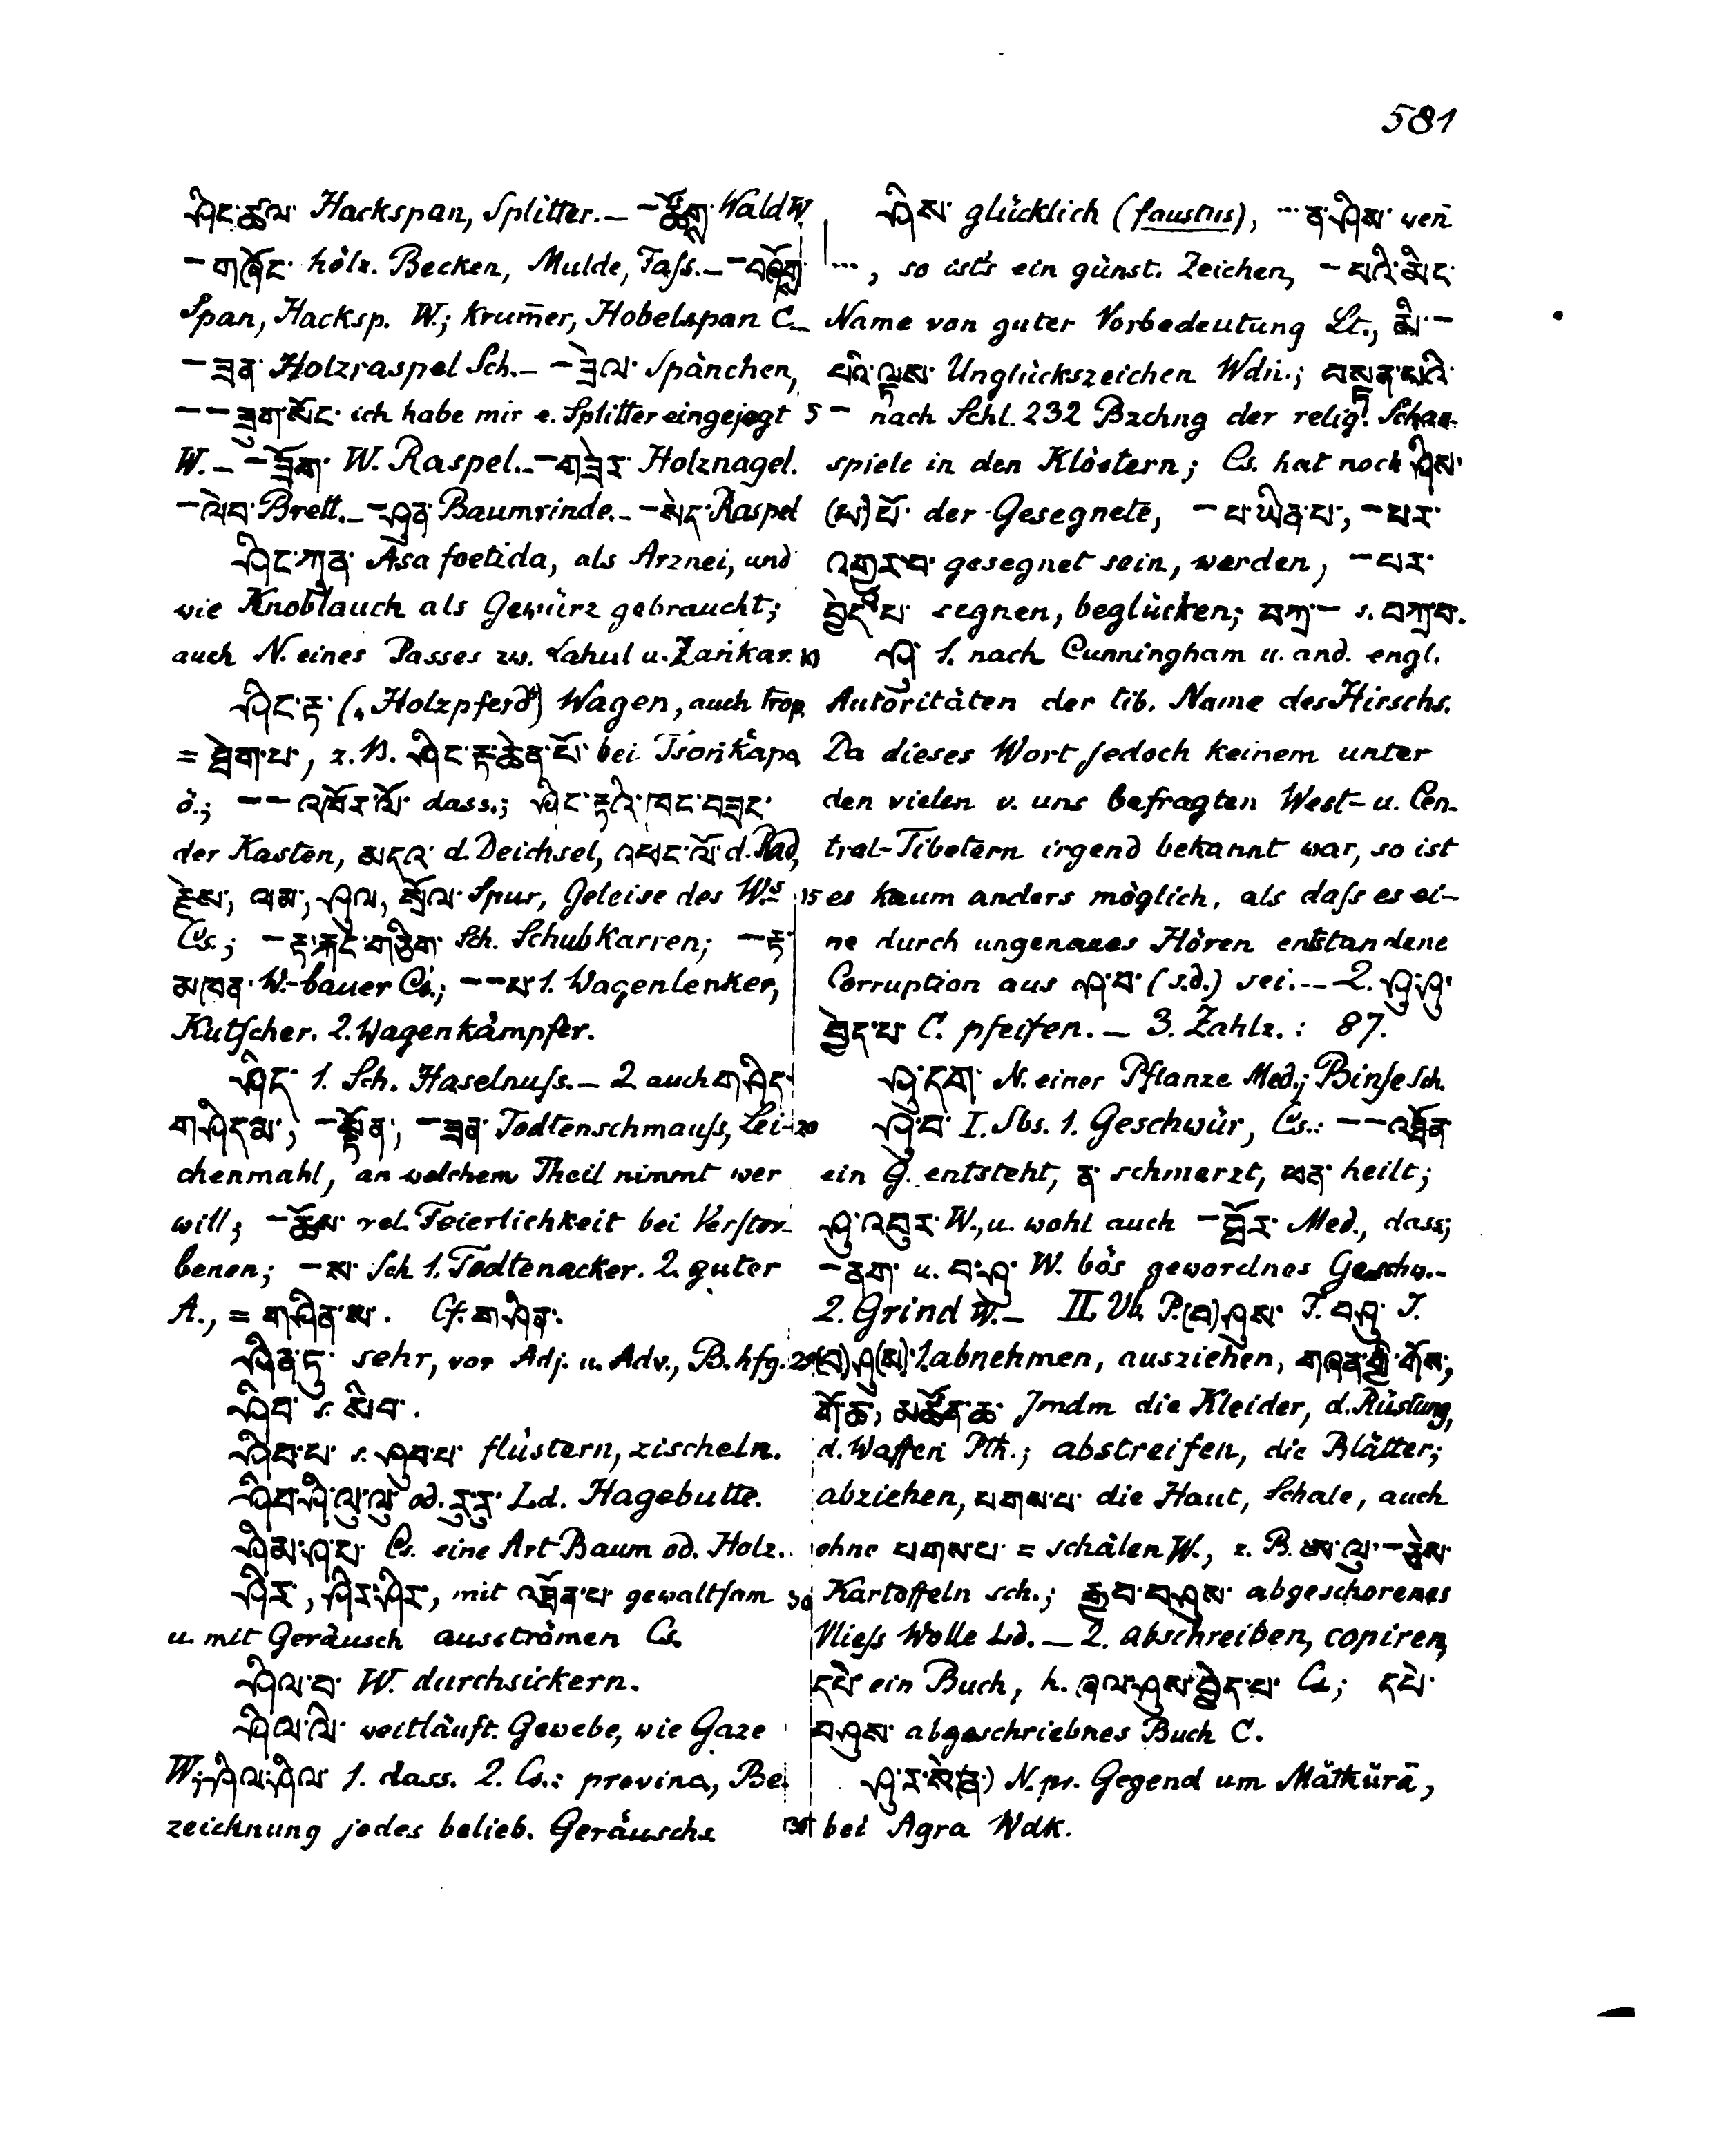 581
ཤིང་ཚལ་ Hackspan, Splitter. — – Wald W.
–གཞོང་ hölz. Becken, Mulde, Faſs. — –
Span, Hacksp. W.; krum̄er, Hobelspan C. —
– Holzraspel Sch. — – Spänchen,
–– སོང་ ich habe mir e. Splitter eingejagt
W. — – W. Raspel. — –གཟེར་ Holznagel.
–ལེབ་ Brett. — –ཤུན་ Baumrinde. — –སེད་ Raspel
ཤིང་ཀུན་ Asa foetida, als Arznei, und
wie Knoblauch als Gewürz gebraucht;
auch N. eines Passes zw. Lahul u. Zaṅkar.
ཤིང་རྟ་ („Holzpferd“) Wagen, auch trop.
= ཐེག་པ་, z. B. ཤིང་རྟ་ཆེན་པོ་ bei Tsoṅkapa
ö.; ––འཁོར་ལོ་ dass.; ཤིང་རྟའི་ཁང་བཟང་
der Kasten, མདའ་ d. Deichsel, འཕང་ལོ་ d. Rad,
རྗེས་, ལམ་, ཤུལ་, སྲོལ་ Spur, Geleise des W.s
Cs.; –རྟ་རྐང་གཅིག་ Sch. Schubkarren; –རྟ་
མཁན་ W.-bauer Cs.; ––པ་ 1. Wagenlenker,
Kutſcher. 2. Wagenkämpfer.
ཤིད་ 1. Sch. Haselnuſs. — 2 auch གཤིད་
གཤིདམ་, –སྟོན་, –ཟན་ Todtenschmauſs, Lei-
chenmahl, an welchem Theil nimmt wer
will; –ཆོས་ rel. Feierlichkeit bei Verſtor-
benen; –ས་ Sch 1. Todtenacker. 2. guter
A., = གཤིན་ས་. Cf. གཤིན་.
ཤིན་ཏུ་ sehr, vor Adj. u. Adv., B. hfg.
ཤིབ་ s. སིབ་.
ཤིབ་པ་ s. ཤུབ་པ་ flüstern, zischeln.
ཤིབ་ཤི་ལུ་ལུ་ od. རུ་རུ་ Ld. Hagebutte.
ཤིམ་ཤ་པ་ Cs. eine Art Baum od. Holz.
ཤིར་, ཤིར་ཤིར་, mit འཐོན་པ་ gewaltſam
u. mit Geräusch ausströmen Cs.
ཤིལ་བ་ W. durchsickern.
ཤིལ་ལི་ weitläuft. Gewebe, wie Gaze
W.; ཤིལ་ཤིལ་ 1. dass. 2. Cs.: provinc., Be-
zeichnung jedes belieb. Geräuschs.
ཤིས་ glücklich (faustus), … ན་ཤིས་ wen̄
…, so ist's ein günst. Zeichen, –པའི་མིང་
Name von guter Vorbedeutung Lt., མི་–
པའི་ལྟས་ Unglückszeichen Wdṅ.; བསྟན་པའི་
5 – nach Schl. 232 Bzchng der relig. Schau-
spiele in den Klöstern; Cs. hat noch ཤིས་
(པ་)པོ་ der Gesegnete, –པ་ཡིན་པ་, –པར་
འགྱུར་བ་ gesegnet sein, werden, –པར་
བྱེད་པ་ segnen, beglücken; བཀྲ་– s. བཀྲ་བ་.
10 ཤུ་ 1. nach Cunningham u. and. engl.
Autoritäten der tib. Name des Hirschs.
Da dieses Wort jedoch keinem unter
den vielen v. uns befragten West- u. Cen-
tral-Tibetern irgend bekannt war, so ist
15 es kaum anders möglich, als daſs es ei-
ne durch ungenaues Hören entstandene
Corruption aus ཤ་བ་ (s.d.) sei. — 2. ཤུ་ཤུ་
བྱེད་པ་ C. pfeifen. — 3. Zahlz.: 87.
ཤུ་དག་ N. einer Pflanze Med.; Binſe Sch.
20 ཤུ་བ་ I. Sbs. 1. Geschwür, Cs.: ––འཐོན་
ein G. entsteht, ན་ schmerzt, ཕན་ heilt;
ཤུ་འབུར་ W., u. wohl auch – Med., dass;
–ནག་ u. བ་ཤུ་ W. bös gewordnes Geschw. —
2. Grind W. — II. Vb. P. (བ)ཤུས་ F. བཤུ་ J.
25 (བ)ཤུ(ས)་ 1. abnehmen, ausziehen, གཞན་གྱི་གོས་,
གོ་ཆ་, མཚོན་ཆ་ Jmdm die Kleider, d. Rüstung,
d. Waffen Pth.; abstreifen, die Blätter;
abziehen, པགས་པ་ die Haut, Schale, auch
ohne པགས་པ་ = schälen W., z. B. ཨ་ལུ་–
30 Kartoffeln sch.; བ་བཤུས་ abgeschorenes
Vlieſs Wolle Ld. — 2. abschreiben, copiren,
དཔེ་ ein Buch, h. ཞལ་ཤུས་བྱེད་པ་ Cs.; དཔེ་
བཤུས་ abgeschriebnes Buch C.
ཤུ་ར་སེ(ན)་ N. pr. Gegend um Māthūrā,
35 bei Agra Wdk.